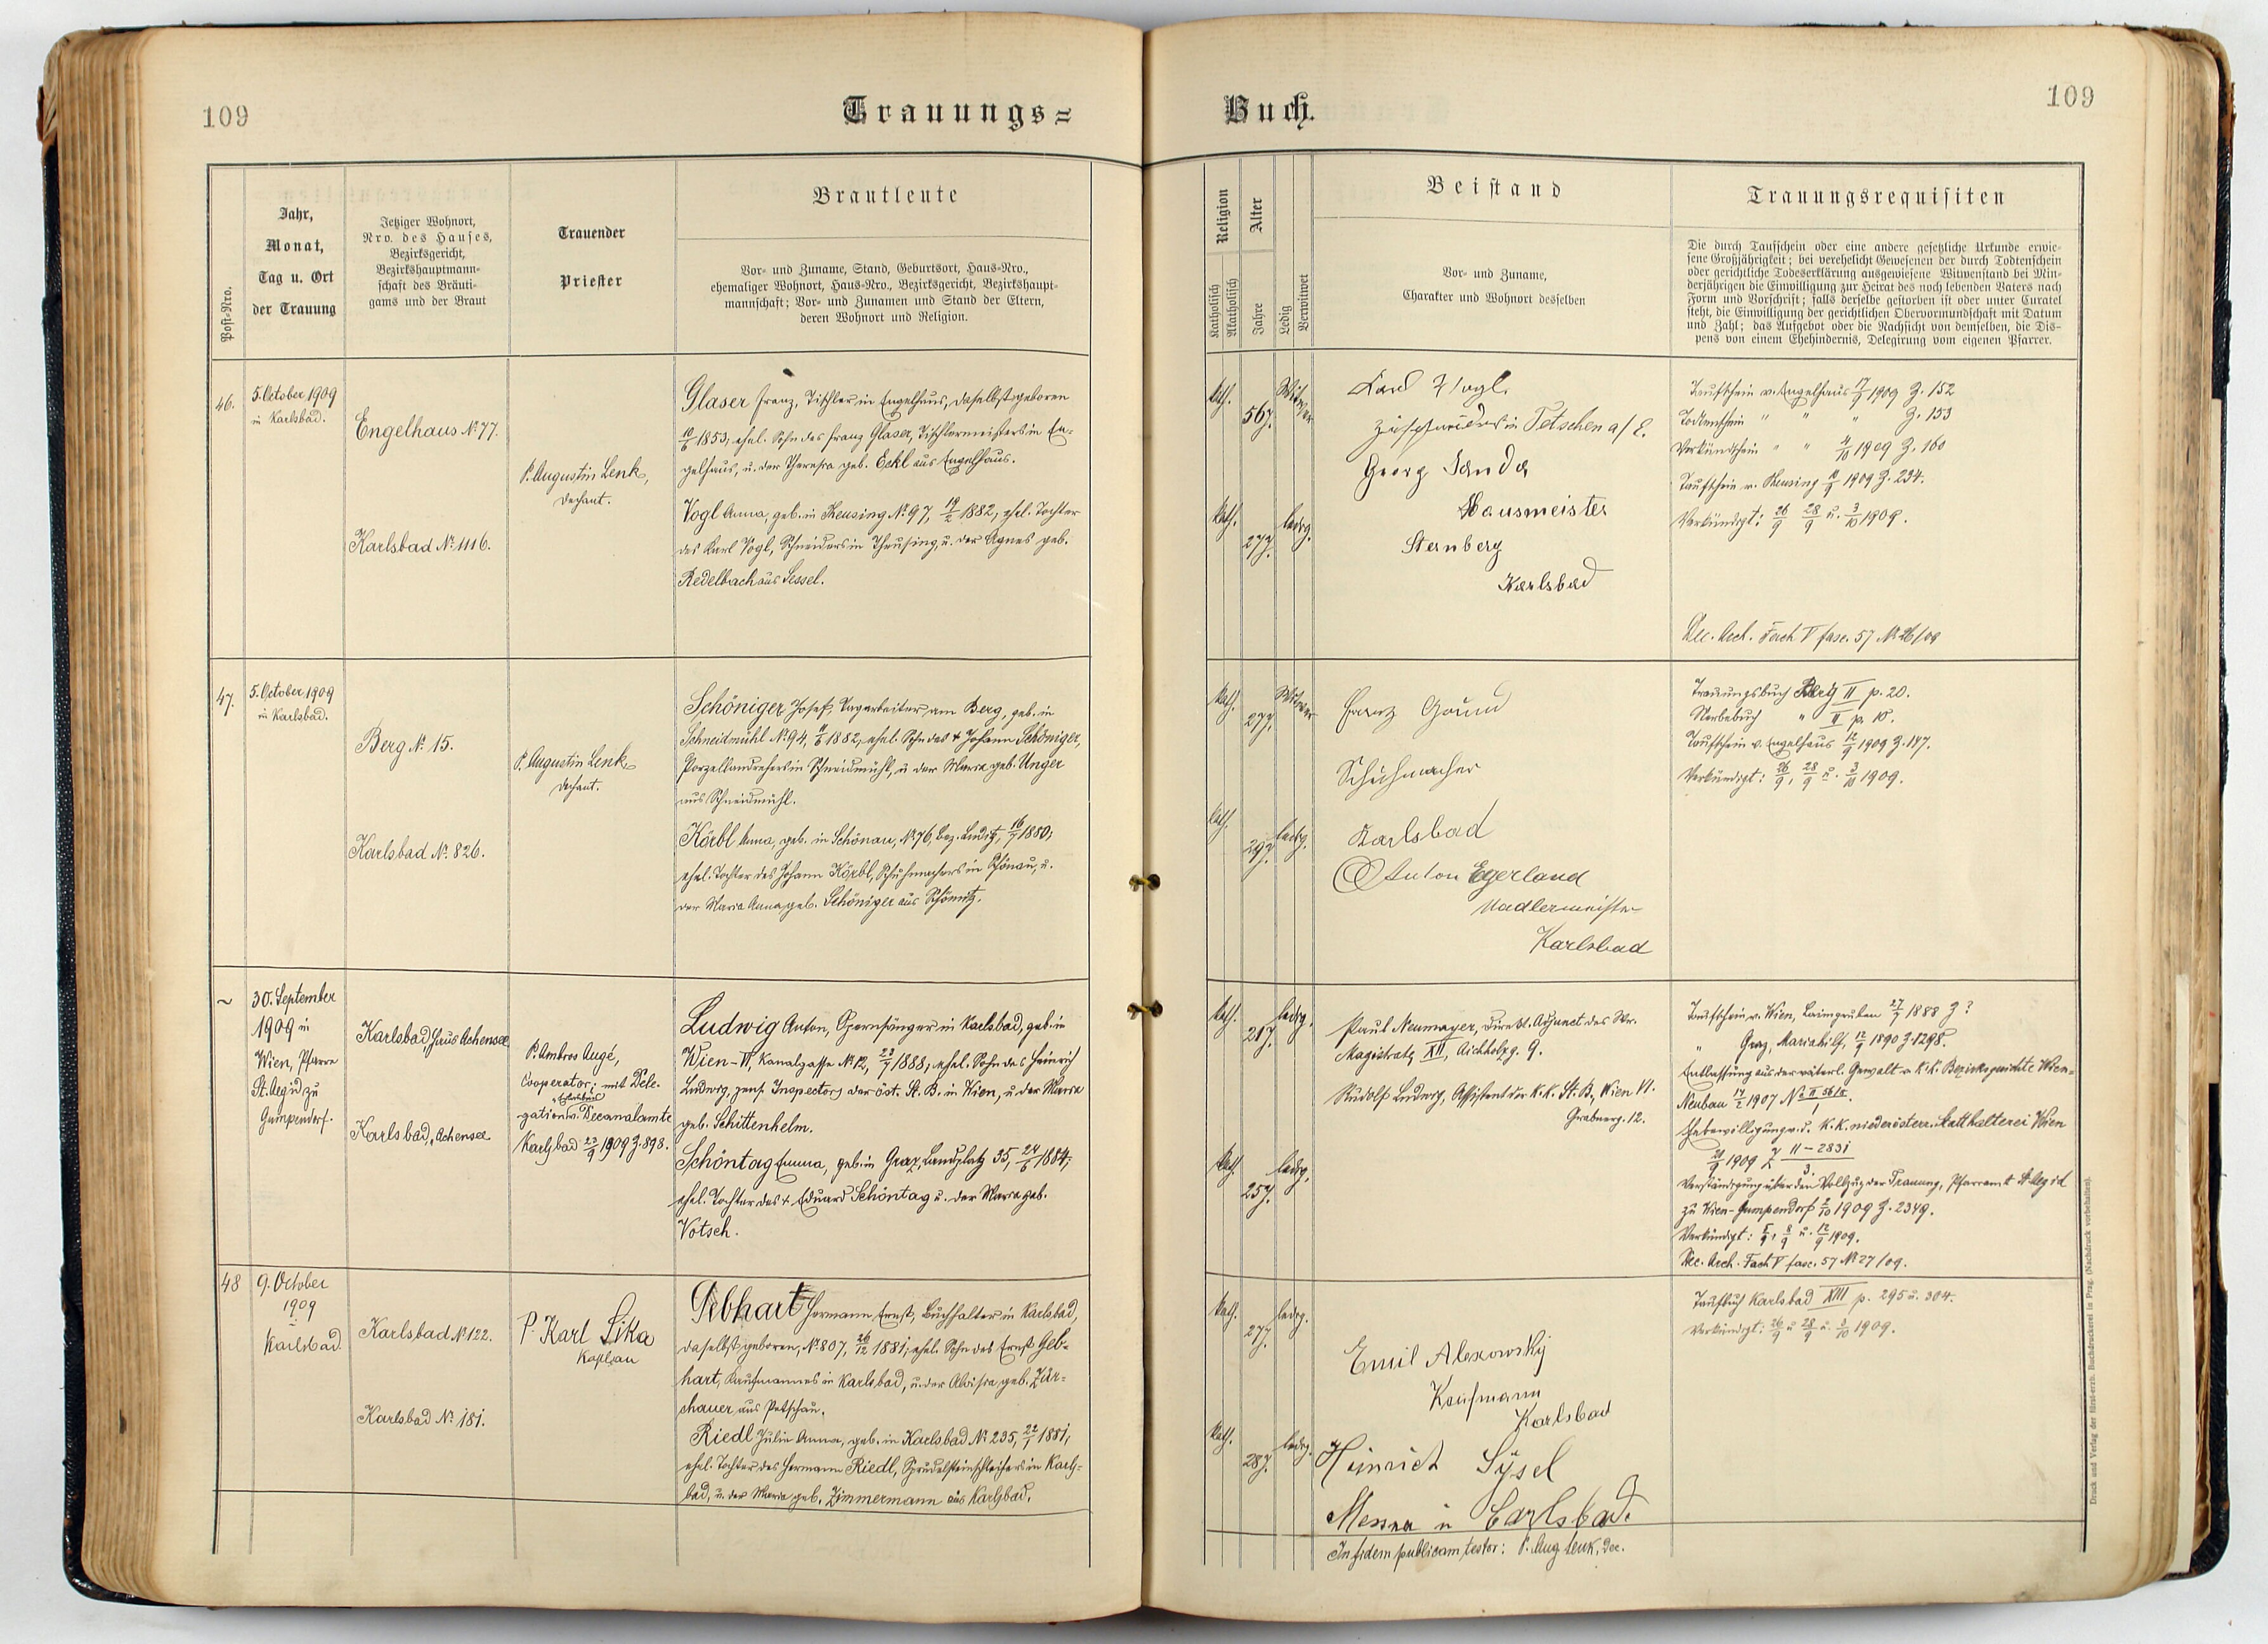 109
Trauungs=
Post-Nro.
Jahr,
Monat,
Tag u. Ort
der Trauung
Jetziger Wohnort,
Nro. des Hauses,
Bezirksgericht,
Bezirkshauptmann-
schaft des Bräuti-
gams und der Braut
Trauender
Priester
Brautleute
Vor- und Zuname, Stand, Geburtsort, Haus-Nro.,
ehemaliger Wohnort, Haus-Nro., Bezirksgericht, Bezirkshaupt-
mannschaft; Vor- und Zunamen und Stand der Eltern,
deren Wohnort und Religion.
46.
5. October 1909
in Karlsbad.
Engelhaus No. 77.
Karlsbad No. 1116.
P. Augustin Lenk,
Dechant.
Glaser Franz, Tischler in Engelhaus, daselbst geboren
10/6 1853, ehel. Sohn des Franz Glaser, Tischlermeisters in En-
gelhaus, u. der Theresia geb. Eckl aus Engelhaus.
Vogl Anna, geb. in Theusing No. 97, 19/2 1882, ehel. Tochter
des Karl Vogl, Schneiders in Theusing, u. der Agnes geb.
Redelbach aus Sessel.
47.
5. October 1909
in Karlsbad.
Berg No. 15.
Karlsbad No. 826.
P. Augustin Lenk,
Dechant.
Schöniger Josef, Tagarbeiter am Berg, geb. in
Schneidmühl No. 94, 1882, ehel. Sohn des + Johann Schöniger,
Porzellandrehers in Schneidmühl, u. der Maria geb. Unger
aus Schneidmühl.
Körbl Anna, geb. in Schönau, No. 76, Bez. Luditz, 16/7 1880,
ehel. Tochter des Johann Körbl, Schuhmachers in Schönau, u.
der Maria Anna geb. Schöniger aus Schömitz.
~
30. September
1909 in
Wien, Pfarre
St. Aegid zu
Gumpendorf.
Karlsbad, Haus Achensee
Karlsbad, "Achensee
P. Ambros Augé,
Cooperator; mit Dele-
gation v. Decanalamte
Karlsbad 23/9 1909 Z. 898.
Ludwig Anton, Opernsänger in Karlsbad, geb. in
Wien-VI, Kanalgasse No. 12, 23/7 1888, ehel. Sohn des Heinrich
Ludwig, pens. Inspectors der öst. St. B. in Wien, u. der Maria
geb. Schittenhelm.
Schöntag Emma, geb. in Graz, Landplatz 35, 24/6 1884,
ehel. Tochter des + Eduard Schöntag u. der Maria geb.
Votsch.
48
9. October
1909
Karlsbad.
Karlsbad No. 122.
Karlsbad No. 181.
P. Karl Sika
Kaplan
Gebhart Hermann Ernst, Buchhalter in Karlsbad,
daselbst geboren, No. 807, 26/12 1881, ehel. Sohn des Ernst Geb-
hart, Kaufmannes in Karlsbad, u. der Aloisia geb. Zür-
chauer aus Petschau.
Riedl Julie Anna, geb. in Karlsbad No. 235, 22/1 1881,
ehel. Tochter des Hermann Riedl, Sprudelsteinschleifers in Karls-
bad, u. der Maria geb. Zimmermann aus Karlsbad.
Buch.
109
Religion
Katholisch
Akatholisch
Alter
Jahre
Ledig
Verwitwet
Beistand
Vor- und Zuname,
Charakter und Wohnort desselben
Trauungsrequisiten
Die durch Taufschein oder eine andere gesetzliche Urkunde erwie-
sene Großjährigkeit; bei verehelicht Gewesenen der durch Todtenschein
oder gerichtliche Todeserklärung ausgewiesene Witwenstand bei Min-
derjährigen die Einwilligung zur Heirat des noch lebenden Vaters nach
Form und Vorschrift; falls derselbe gestorben ist oder unter Curatel
steht, die Einwilligung der gerichtlichen Obervormundschaft mit Datum
und Zahl; das Aufgebot oder die Nachsicht von demselben, die Dis-
pens von einem Ehehindernis, Delegirung vom eigenen Pfarrer.
kath.
56 J.
Witwer
kath.
27 J.
ledig.
Karl Vogl
Zuschneider in Tetschen a/E.
Georg Sanda
Hausmeister
Sternberg
Karlsbad
Taufschein v. Engelhaus 17/9 1909 Z. 152
Todtenschein " " " Z. 153
Verkündschein " " 4/10 1909 Z. 160
Taufschein v. Theusing 1909 Z. 234.
Verkündigt: 26/9 28/9 u. 3/10 1909.
Dec. Arch. Fach V fasc. 57 No. 26/09
kath.
27 J.
Witwer
kath.
29 J.
ledig.
Franz
Schuhmacher
Karlsbad
Anton Egerland
Nadlermeister
Karlsbad
Trauungsbuch Berg II p. 20.
Sterbebuch " II p. 10.
Taufschein v. Engelhaus 12/9 1909 Z. 147.
Verkündigt: 26/9, 28/9 u. 3/10 1909.
kath.
21 J.
ledig.
kath.
25 J.
ledig.
Paul Neumayer, Direkt. Adjunct des Wr.
Magistrats XII, Aichholzg. 9.
Rudolf Ludwig, Assistent der K.K. St. B., Wien VI.
Grabnerg. 12.
Taufschein v. Wien, Laimgruben 27/7 1888 Z ?
" Graz, Mariahilf, 12/9 1890 Z. 1298.
Entlassung aus der väterl. Gewalt v. K.K. Bezirksgerichte Wien-
Neubau 1907
Ehebewilligung v. d. K.K. niederösterr. Statthalterei Wien
21/9 1909 Z II-2831/3.
Verständigung über den Vollzug der Trauung, Pfarramt St. Aegid
zu Wien-Gumpendorf 2/10 1909 Z. 2349.
Verkündigt: 5/9, 8/9 u. 12/9 1909.
Dec. Arch. Fach V fasc. 57 No. 27/09.
kath.
27 J.
ledig.
kath.
28 J.
ledig.
Emil Alexowsky
Kaufmann
Karlsbad
Heinrich Sysel
Messner in Carlsbad.
In fidem publicam testor: P. Aug Lenk, Dec.
Taufbuch Karlsbad XIII p. 295 u. 304.
Verkündigt: 26/9 u 28/9 u. 3/10 1909.
Druck und Verlag der fürst-erzb. Buchdruckerei in Prag. (Nachdruck vorbehalten).